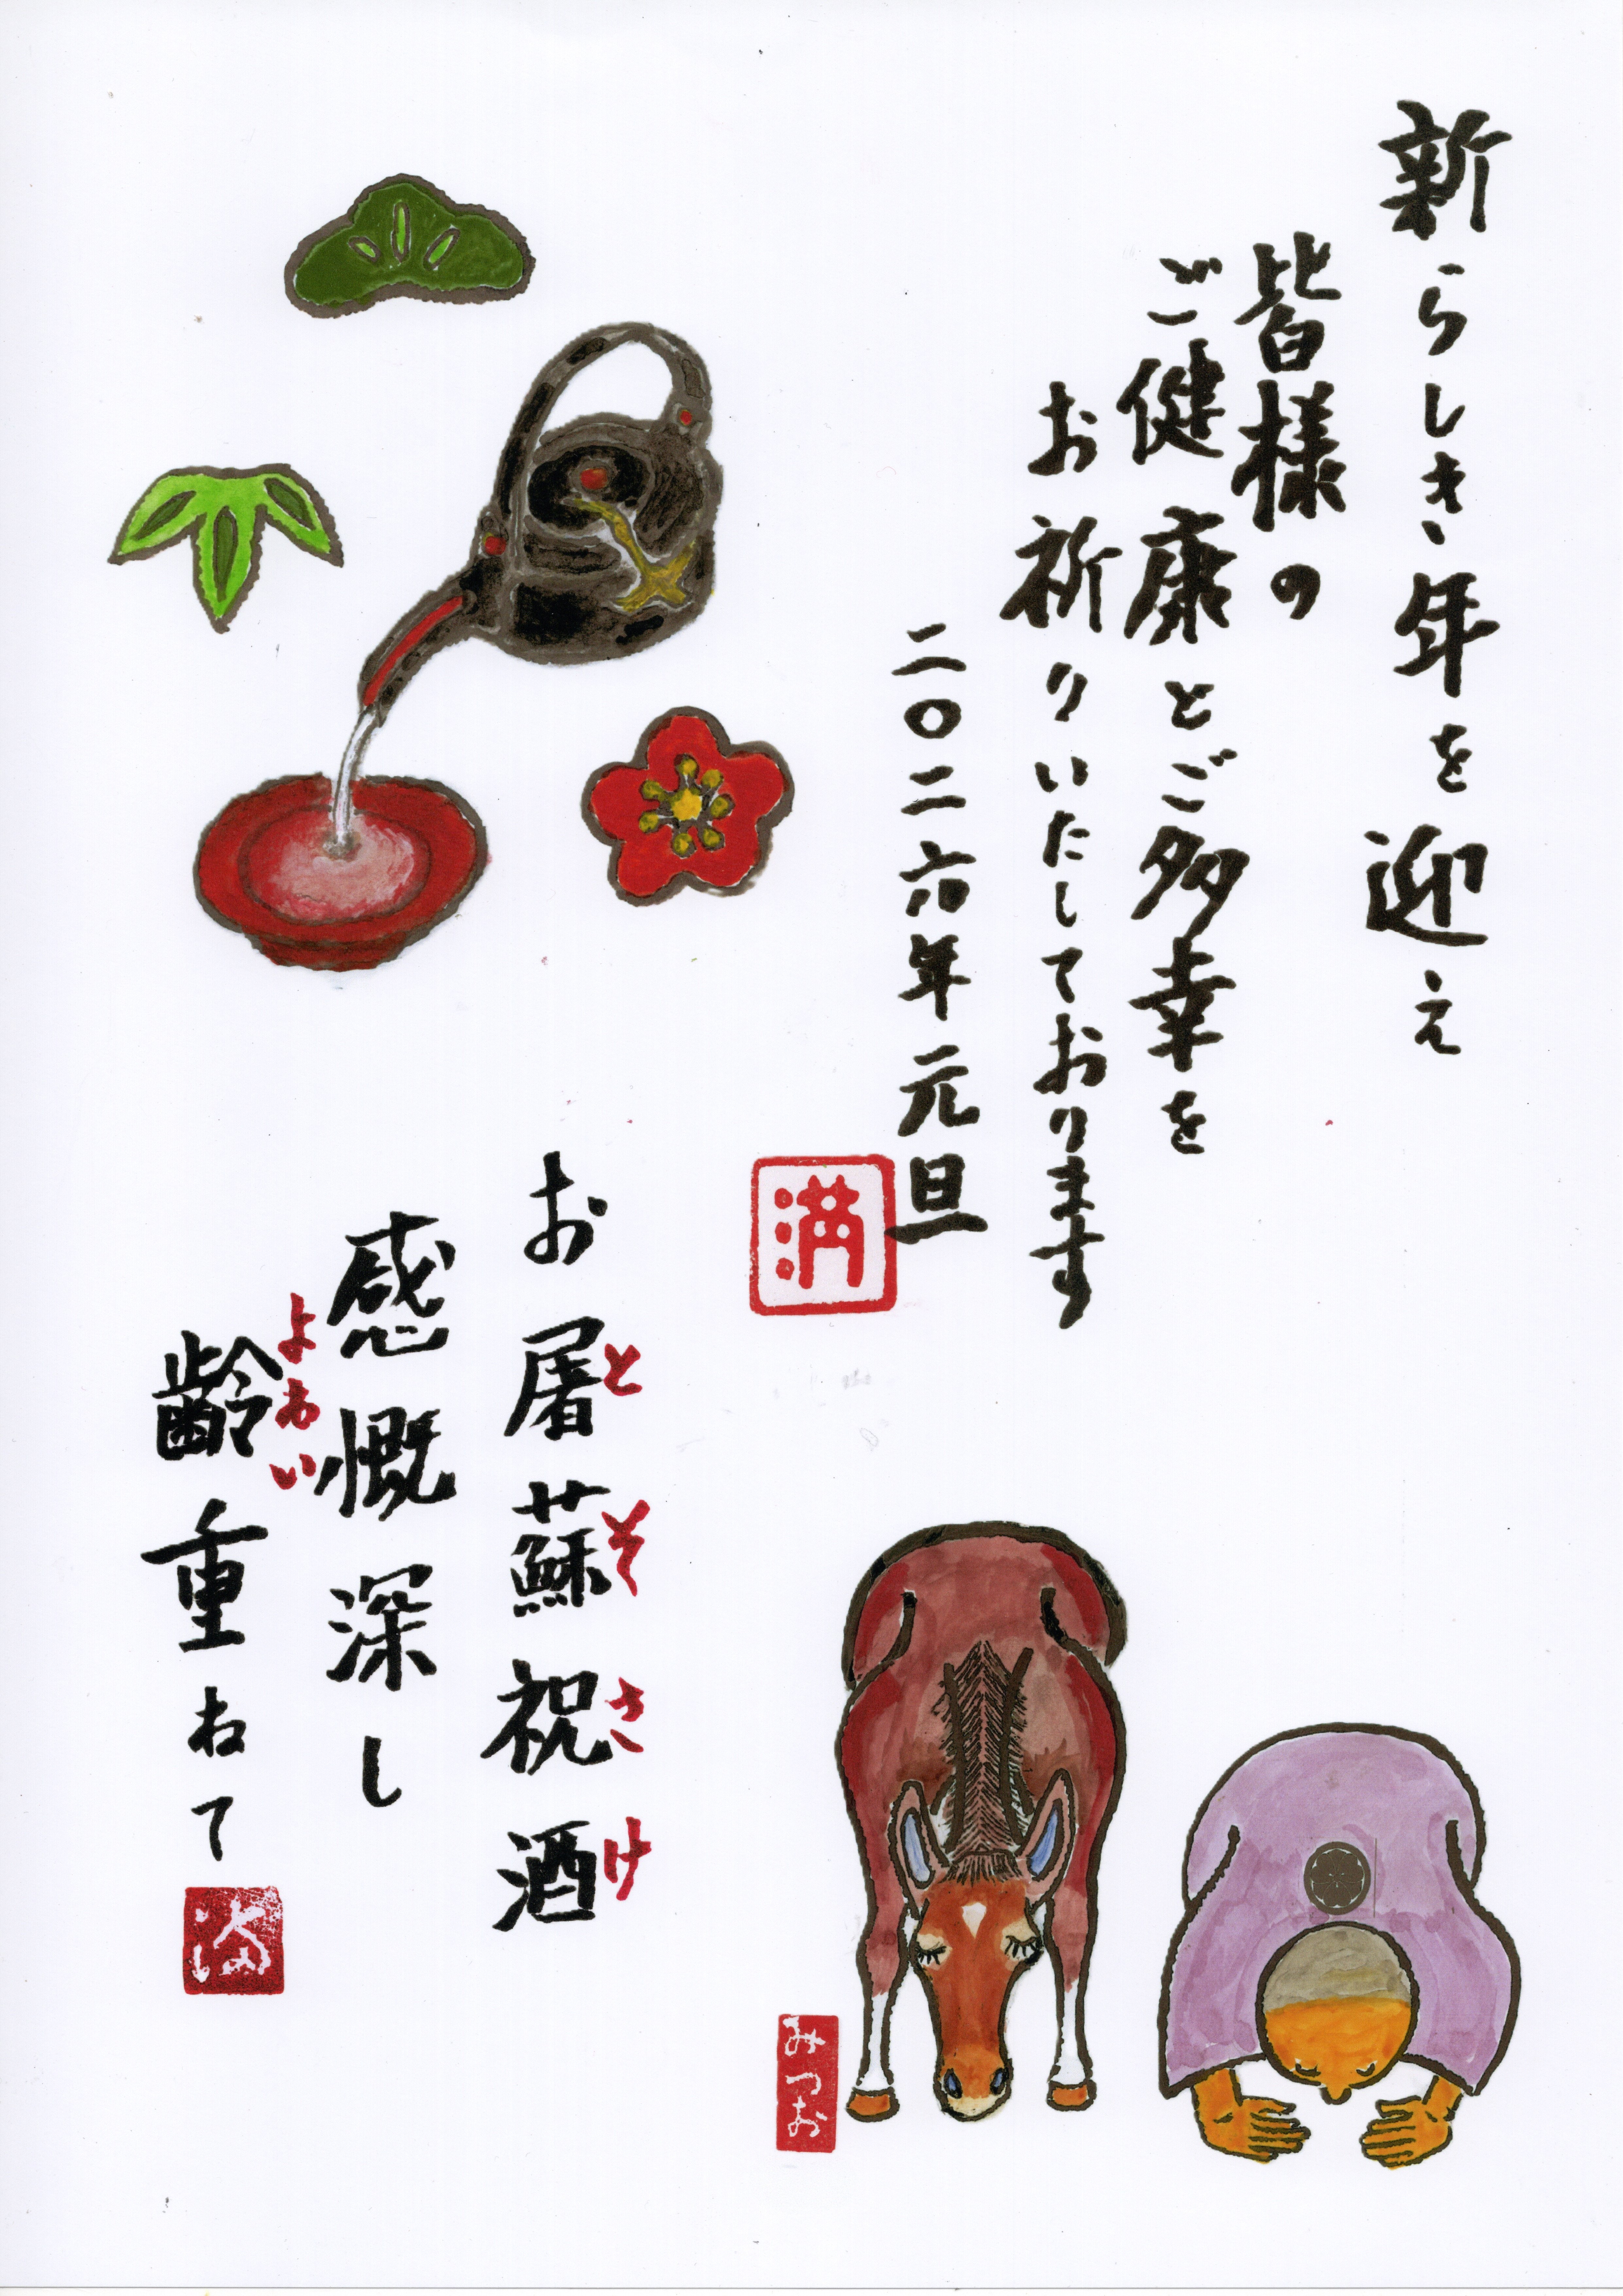 新らしき年を迎え
皆様の
ご健康とご多幸を
お祈りいたしております
二〇二六年元旦
満
お屠蘇祝酒
とそさけ
感慨深し
齢重ねて
よわい
満
みつお